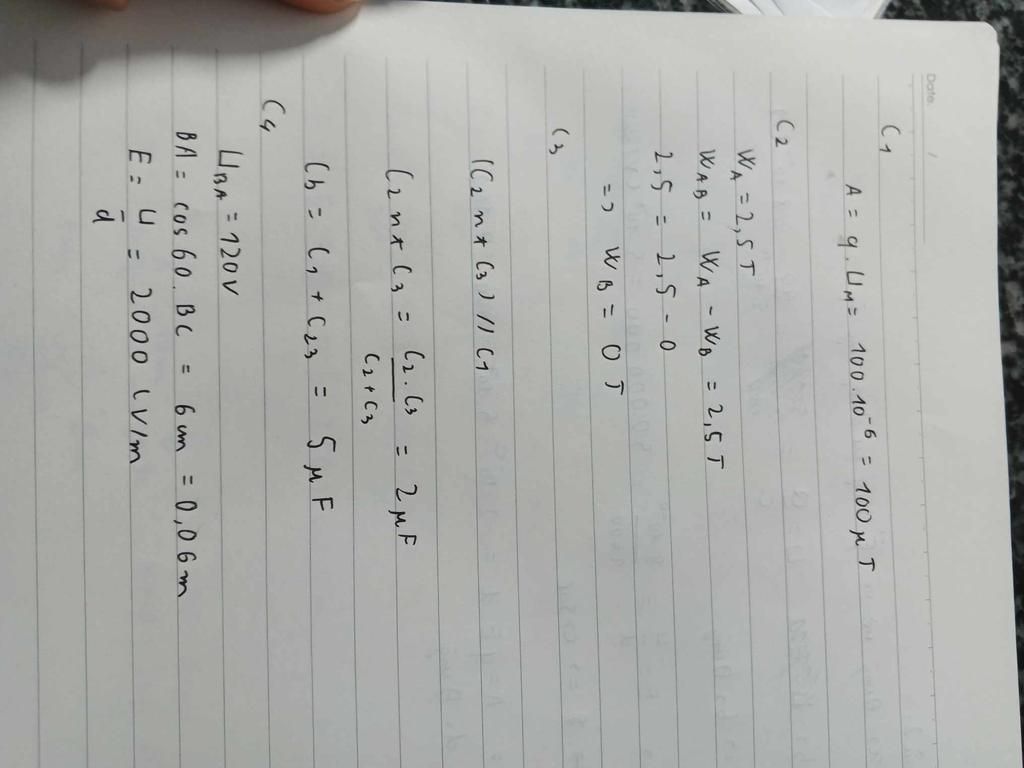 Date: /
C1
A = q. UM = 100.10-6 = 100μT
C2
WA = 2,5T
WAB = WA - WB = 2,5T
2,5 = 2,5 - 0
=> WB = 0 T
C3
(C2 nt C3) // C1
C2 nt C3 = C2.C3 / C2+C3 = 2μF
Cb = C1 + C23 = 5μF
C4
UBA = 120V
BA = cos60. BC = 6cm = 0,06m
E = U/d = 2000 (V/m